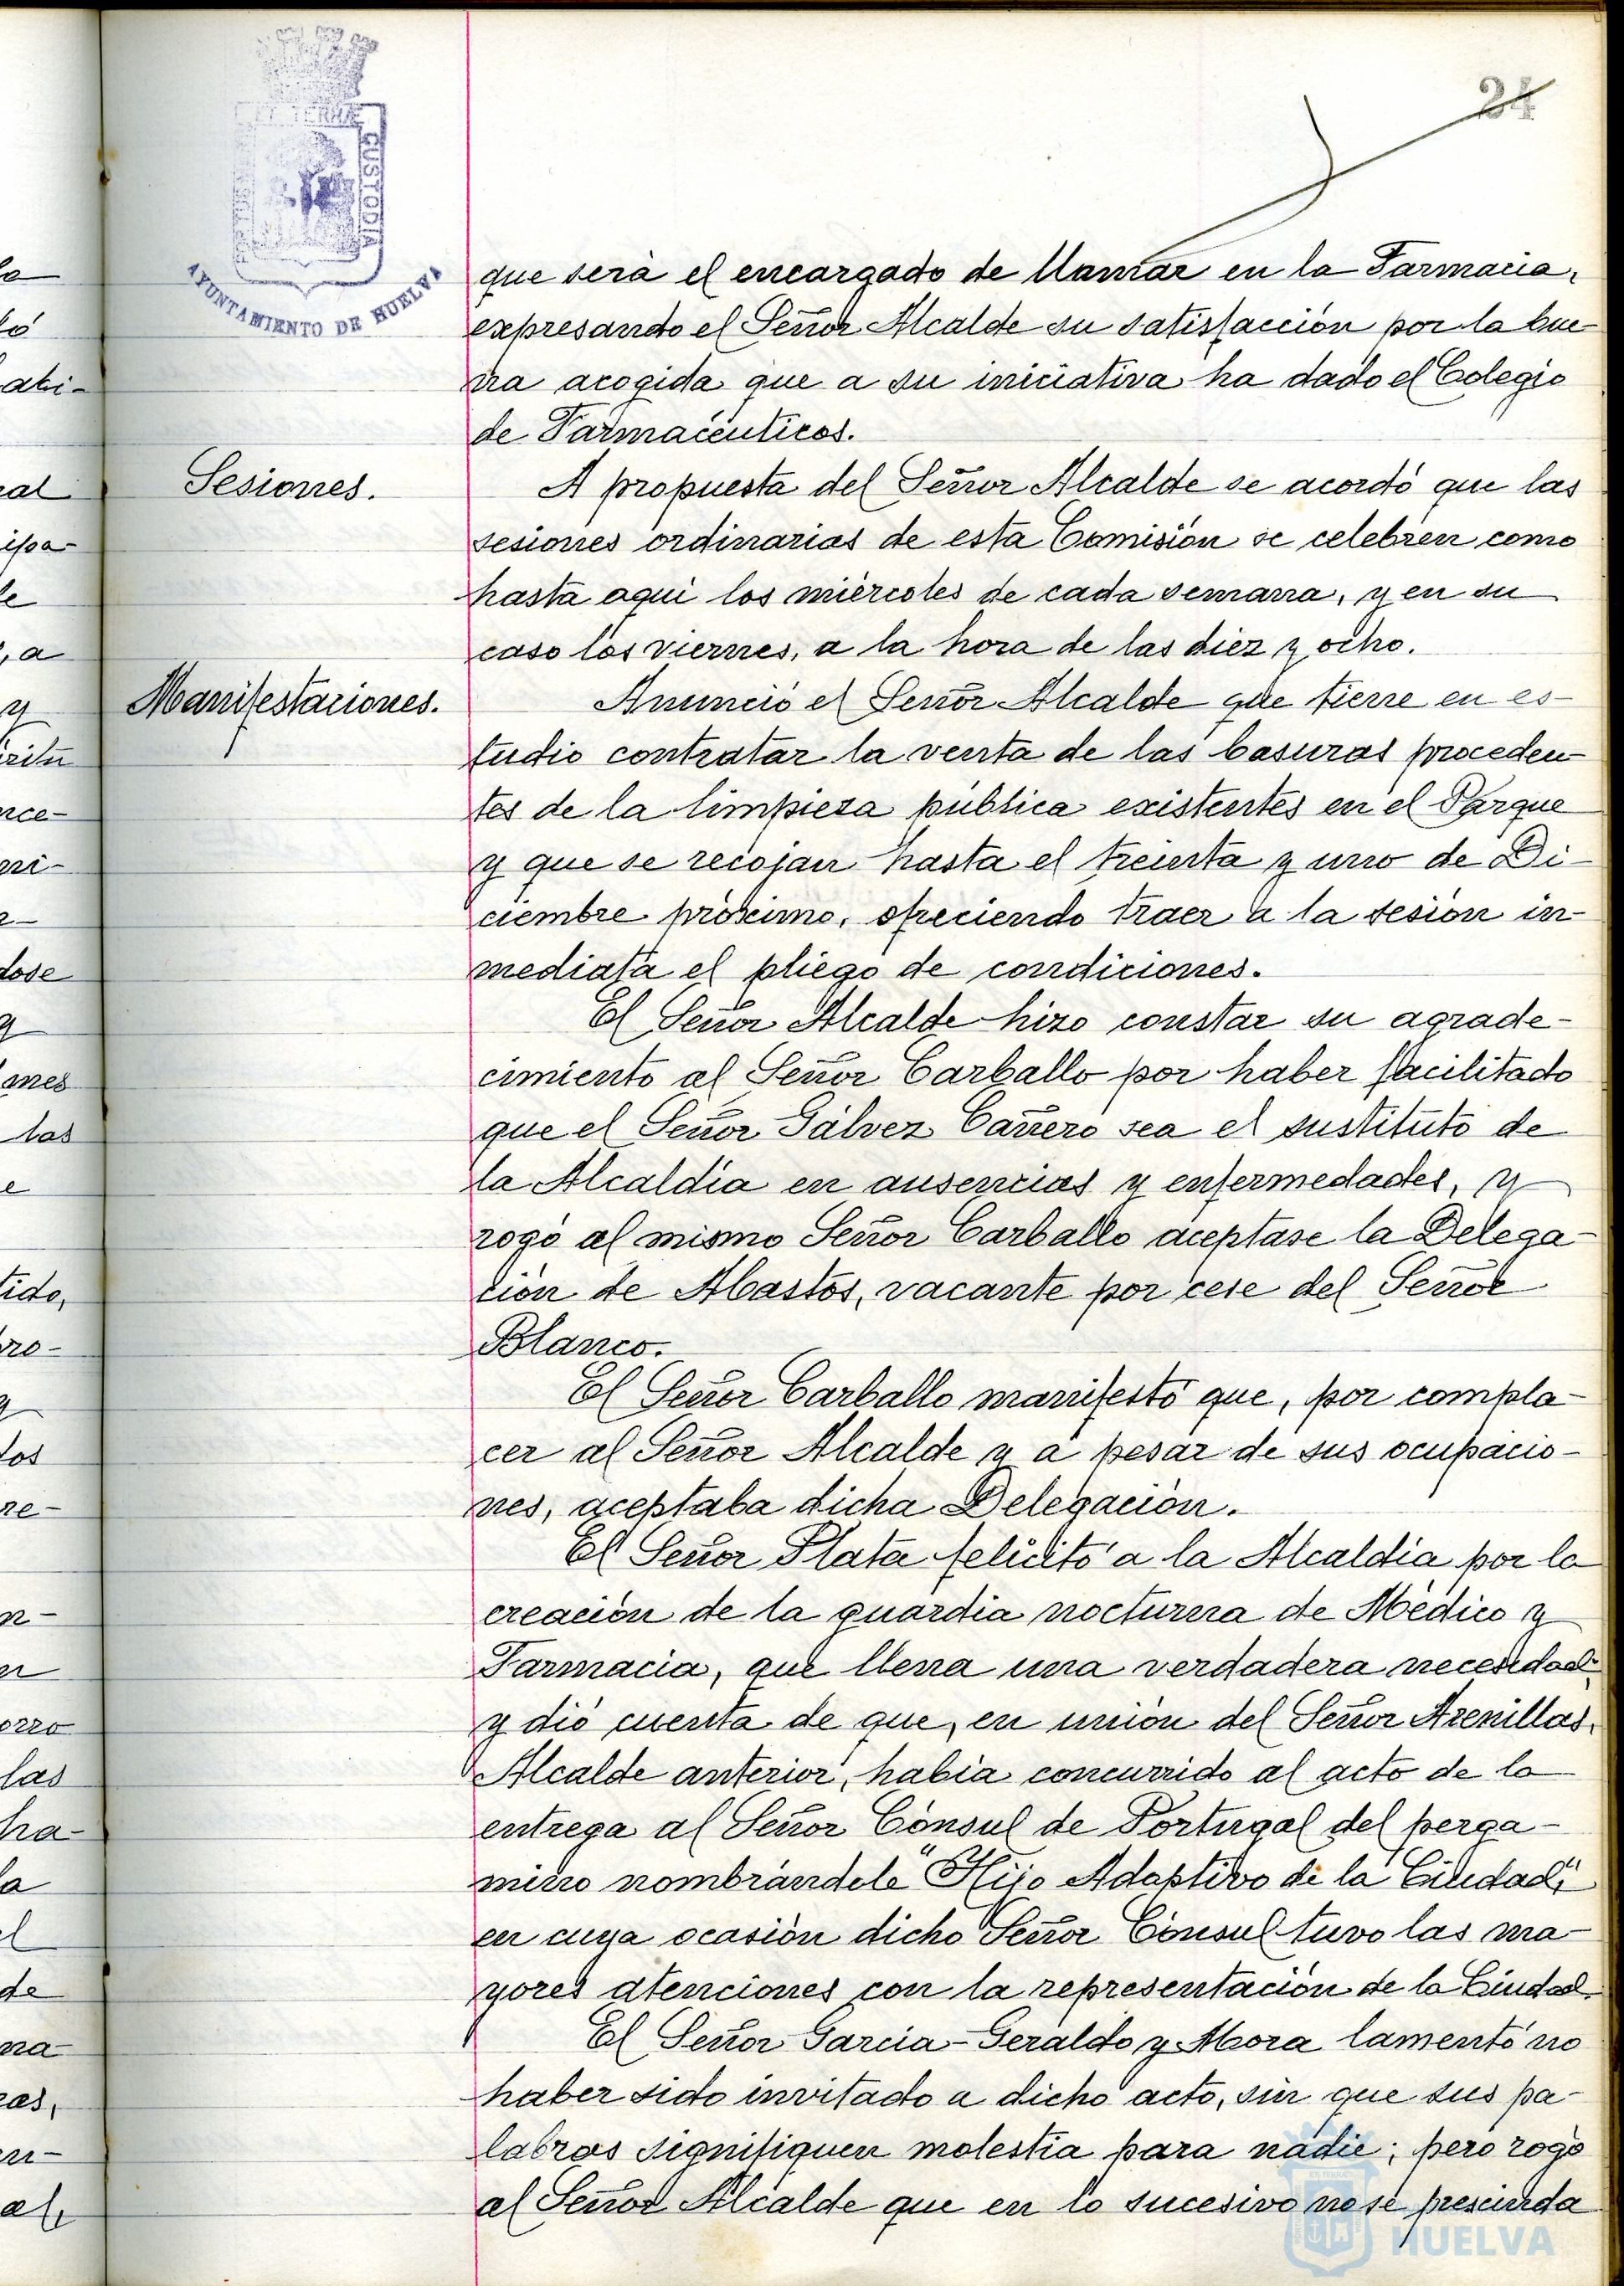 24
TERRAE
CUSTODIA
AYUNTAMIENTO DE HUELVA
que será el encargado de llamar en la Farmacia,
expresando el Señor Alcalde su satisfacción por la bue-
na acogida que a su iniciativa ha dado el Colegio
de Farmacéuticos.
Sesiones.
A propuesta del Señor Alcalde se acordó que las
sesiones ordinarias de esta Comisión se celebren como
hasta aquí los miércoles de cada semana, y en su
caso los viernes, a la hora de las diez y ocho.
Manifestaciones.
Anunció el Señor Alcalde que tiene en es-
tudio contratar la venta de las basuras proceden-
tes de la limpieza pública existentes en el Parque
y que se recojan hasta el treinta y uno de Di-
ciembre próximo, ofreciendo traer a la sesión in-
mediata el pliego de condiciones.
El Señor Alcalde hizo constar su agrade-
cimiento al Señor Carballo por haber facilitado
que el Señor Gálvez Cañero sea el sustituto de
la Alcaldía en ausencias y enfermedades, y
rogó al mismo Señor Carballo aceptase la Delega-
ción de Abastos, vacante por cese del Señor
Blanco.
El Señor Carballo manifestó que, por compla-
cer al Señor Alcalde y a pesar de sus ocupacio-
nes, aceptaba dicha Delegación.
El Señor Plata felicitó a la Alcaldía por la
creación de la guardia nocturna de Médico y
Farmacia, que llena una verdadera necesidad
y dió cuenta de que, en unión del Señor Arenillas,
Alcalde anterior, había concurrido al acto de la
entrega al Señor Cónsul de Portugal del perga-
mino nombrándole "Hijo Adoptivo de la Ciudad",
en cuya ocasión dicho Señor Cónsul tuvo las ma-
yores atenciones con la representación de la Ciudad.
El Señor Garcia-Geraldo y Mora lamentó no
haber sido invitado a dicho acto, sin que sus pa-
labras signifiquen molestia para nadie; pero rogó
al Señor Alcalde que en lo sucesivo no se prescinda
HUELVA